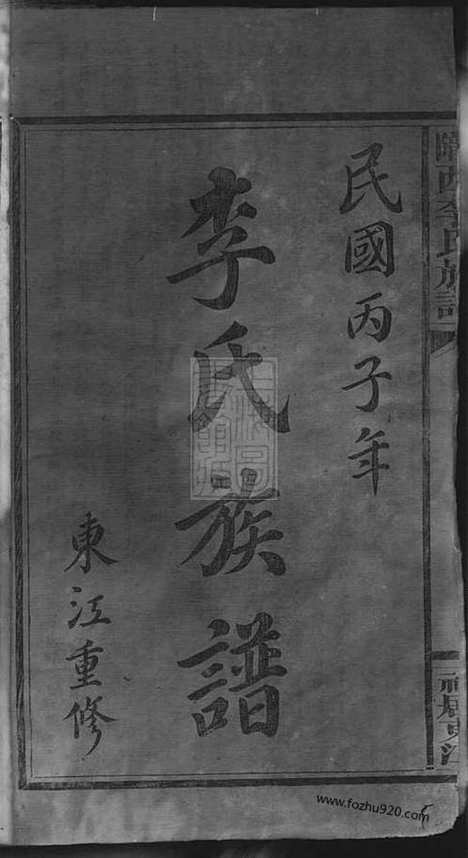 隴西李氏族譜
民國丙子年
李氏族譜
東江重修
www.fozhu920.com